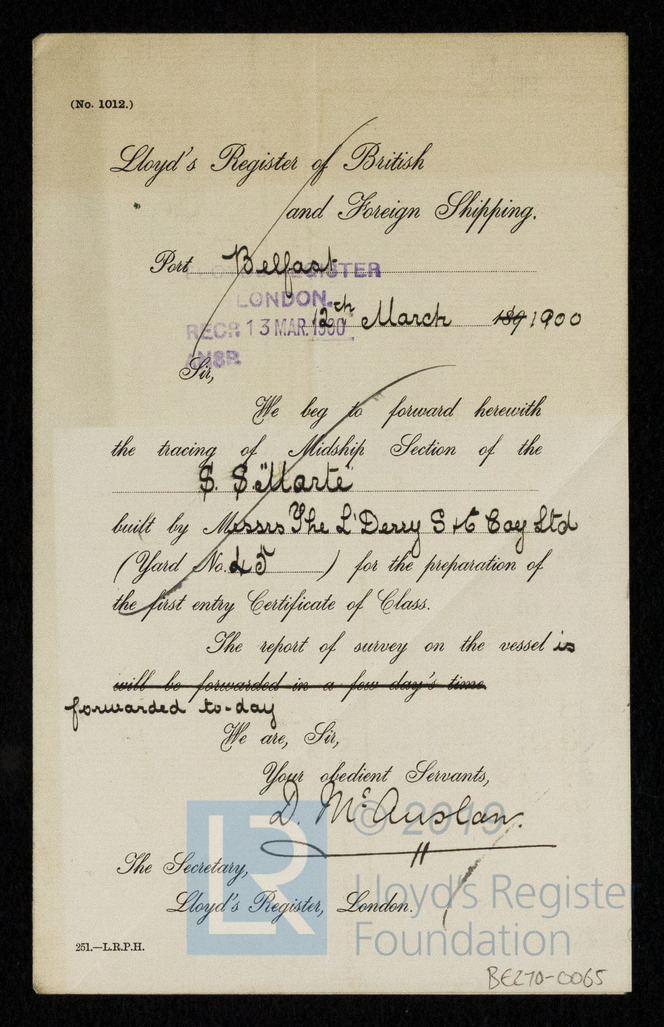 (No. 1012.)
Lloyd's Register of British
and Foreign Shipping.
Port Belfast
LLOYD'S REGISTER
LONDON.
12th March 189 1900
RECD 13 MAR. 1900
ANSD
Sir,
We beg to forward herewith
the tracing of Midship Section of the
S. S. "Marte"
built by Messrs The L'Derry S & C Coy Ltd
(Yard No. 45 ) for the preparation of
the first entry Certificate of Class.
The report of survey on the vessel is
will be forwarded in a few day's time
forwarded to-day
We are, Sir,
Your obedient Servants,
D. McAuslan.
© 2019
The Secretary,
Lloyd's Register, London.
LR
Lloyd's Register
Foundation
251.—L.R.P.H.
BE270-0065